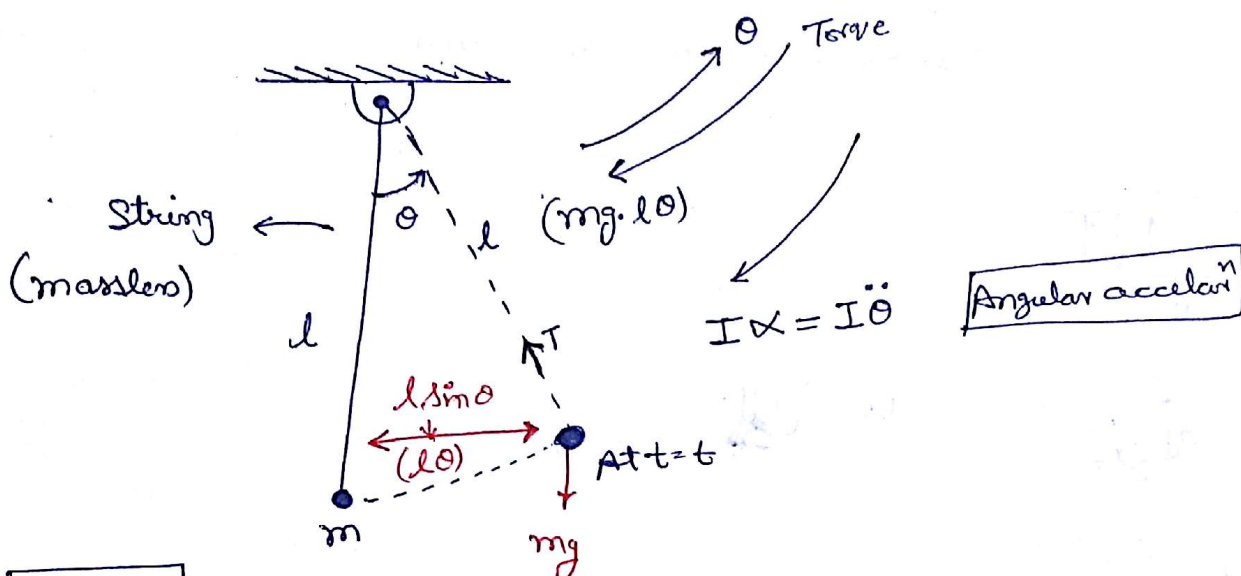 θ Torve
θ
String
(massless)
l
l
(mg.lθ)
Iα = Iθ̈
Angular accelarⁿ
T
l sinθ
(lθ)
At t=t
m
mg